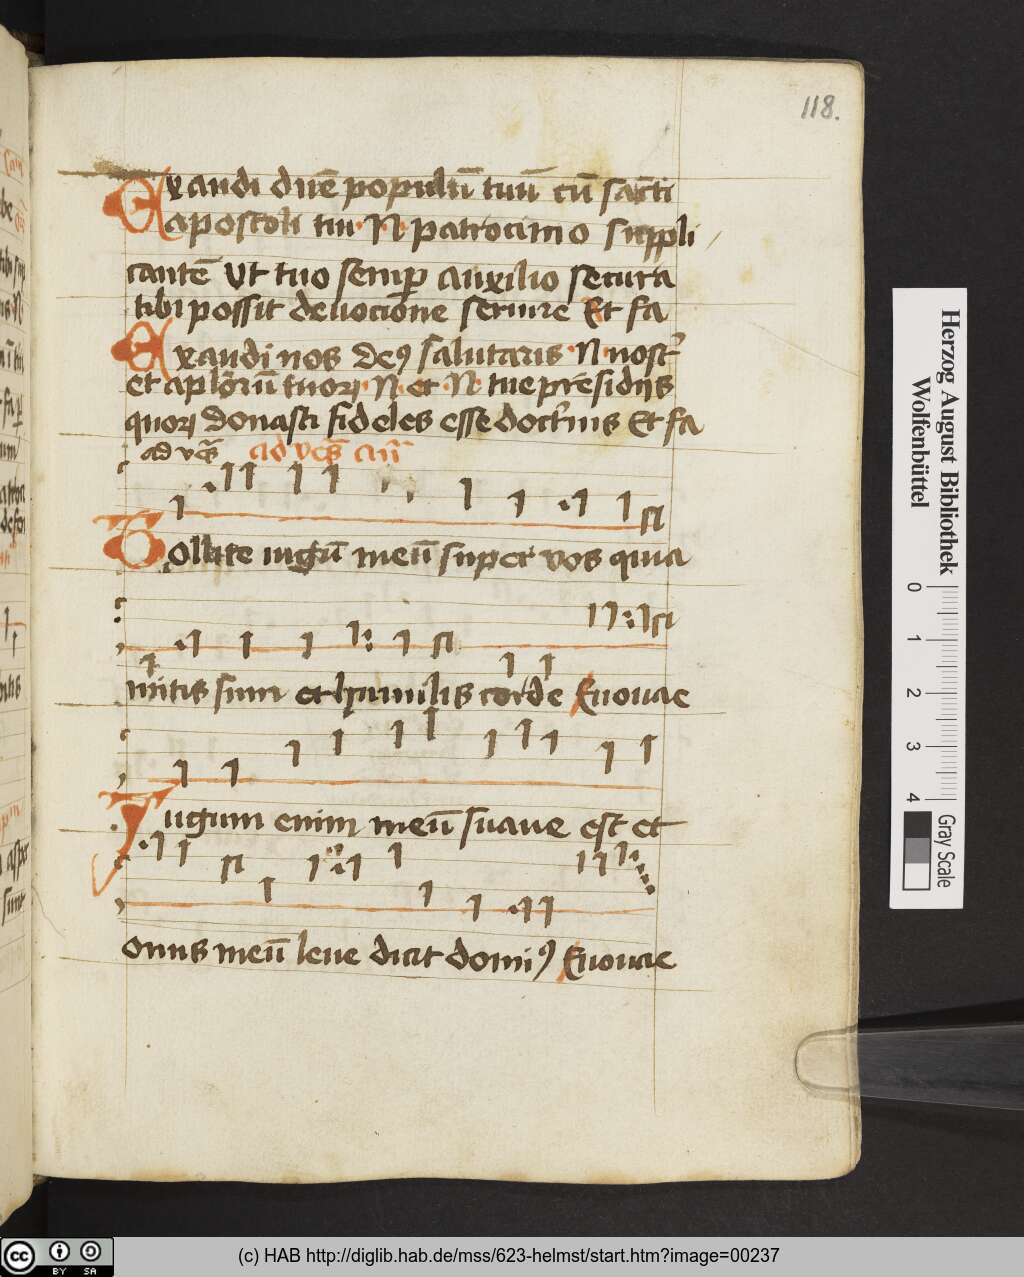 118.
Exaudi dn̄e populū tuū cū sāti
apostoli tui · N · patrocinio suppli
cantē Vt tuo semꝑ auxilio secura
tibi possit deuocione seruire Et fa
Exaudi nos deꝰ salutaris · N · nostͬ
et aplōrū tuoꝝ · N · et · N · tue presidijs
quoꝝ donasti fideles esse doctͬinis Et fa
ad vēs ad vēs an̄
Tollite iugū meū super vos quia
mitis sum et humilis corde Euouae
Iugum enim meū suaue est et
onus meū leue dicit dominꝰ Euouae
Herzog August Bibliothek
Wolfenbüttel
0 1 2 3 4
Gray Scale
cc BY SA
(c) HAB http://diglib.hab.de/mss/623-helmst/start.htm?image=00237